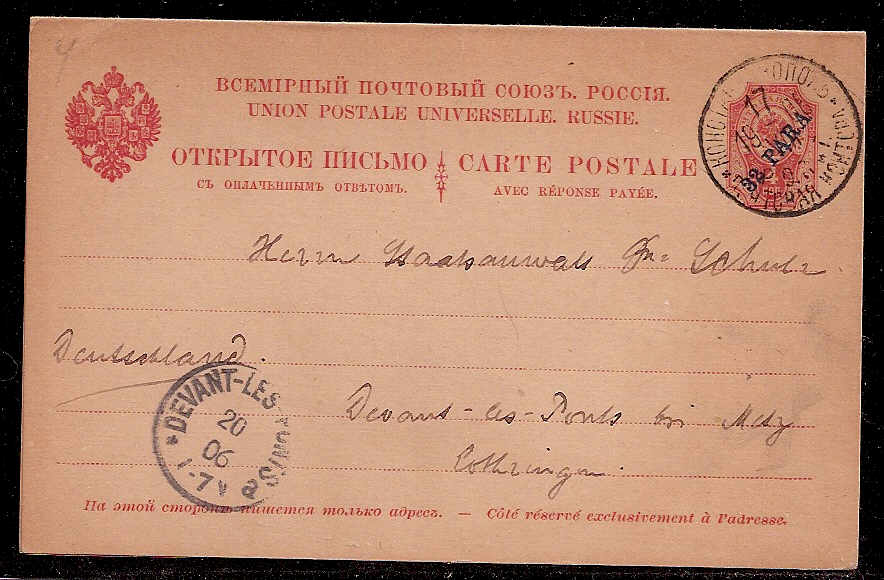 ВСЕМІРНЫЙ ПОЧТОВЫЙ СОЮЗЪ. РОССІЯ.
UNION POSTALE UNIVERSELLE. RUSSIE.
ОТКРЫТОЕ ПИСЬМО CARTE POSTALE
СЪ ОПЛАЧЕННЫМЪ ОТВѢТОМЪ. AVEC RÉPONSE PAYÉE.
PARA
17
Herrn Staatsanwalt Dr. Schulz
Deutschland.
Devant-les-Ponts bei Metz
Lothringen.
DEVANT-LES-PONTS
20
06
1-7V
На этой сторонѣ пишется только адресъ. — Côté réservé exclusivement à l'adresse.